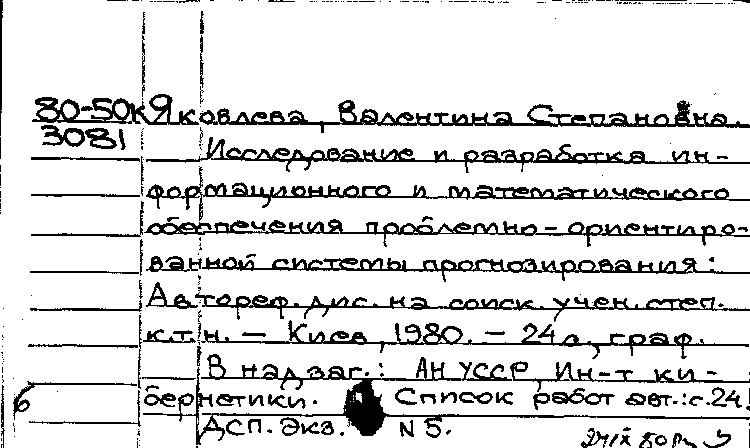 80-50к Яковлева, Валентина Степановна.
3081
Исследование и разработка ин-
формационного и математического
обеспечения проблемно-ориентиро-
ванной системы прогнозирования:
Автореф. дис. на соиск. учен. степ.
к.т.н. — Киев, 1980. — 24 с., граф.
В надзаг.: АН УССР, Ин-т ки-
бернетики. Список работ авт.: с. 24.
б
ДСП. Экз. N 5.